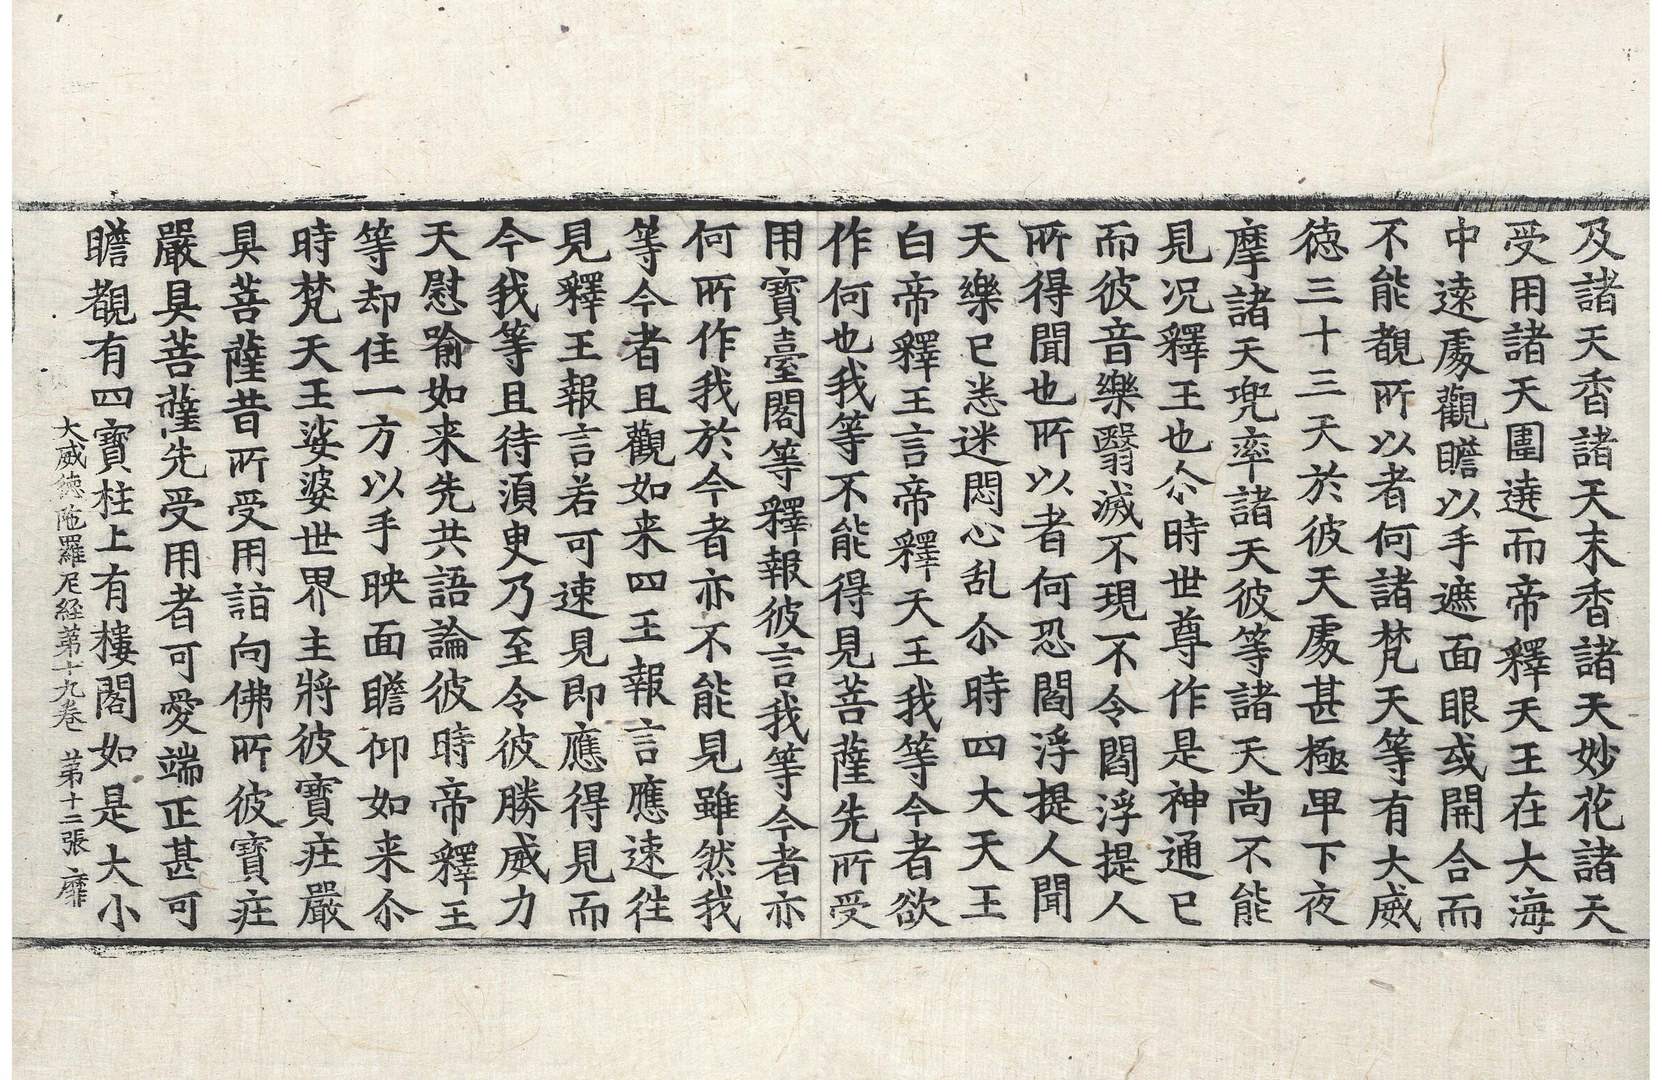 及諸天香諸天末香諸天妙花諸天
受用諸天圍遶而帝釋天王在大海
中遠處觀瞻以手遮面眼或開合而
不能覩所以者何諸梵天等有大威
徳三十三天於彼天處甚極卑下夜
摩諸天兜率諸天彼等諸天尚不能
見况釋王也尒時世尊作是神通已
而彼音樂翳滅不現不令閻浮提人
所得聞也所以者何恐閻浮提人聞
天樂已悉迷悶心乱尒時四大天王
白帝釋王言帝釋天王我等今者欲
作何也我等不能得見菩薩先所受
用寶臺閣等釋報彼言我等今者亦
何所作我於今者亦不能見雖然我
等今者且觀如来四王報言應速往
見釋王報言若可速見即應得見而
今我等且待湏臾乃至令彼勝威力
天慰喻如来先共語論彼時帝釋王
等却住一方以手映面瞻仰如来尒
時梵天王娑婆世界主將彼寶莊嚴
具菩薩昔所受用詣向佛所彼寶莊
嚴具菩薩先受用者可愛端正甚可
瞻覩有四寶柱上有樓閣如是大小
大威徳陁羅尼経第十九卷 第十二張 靡